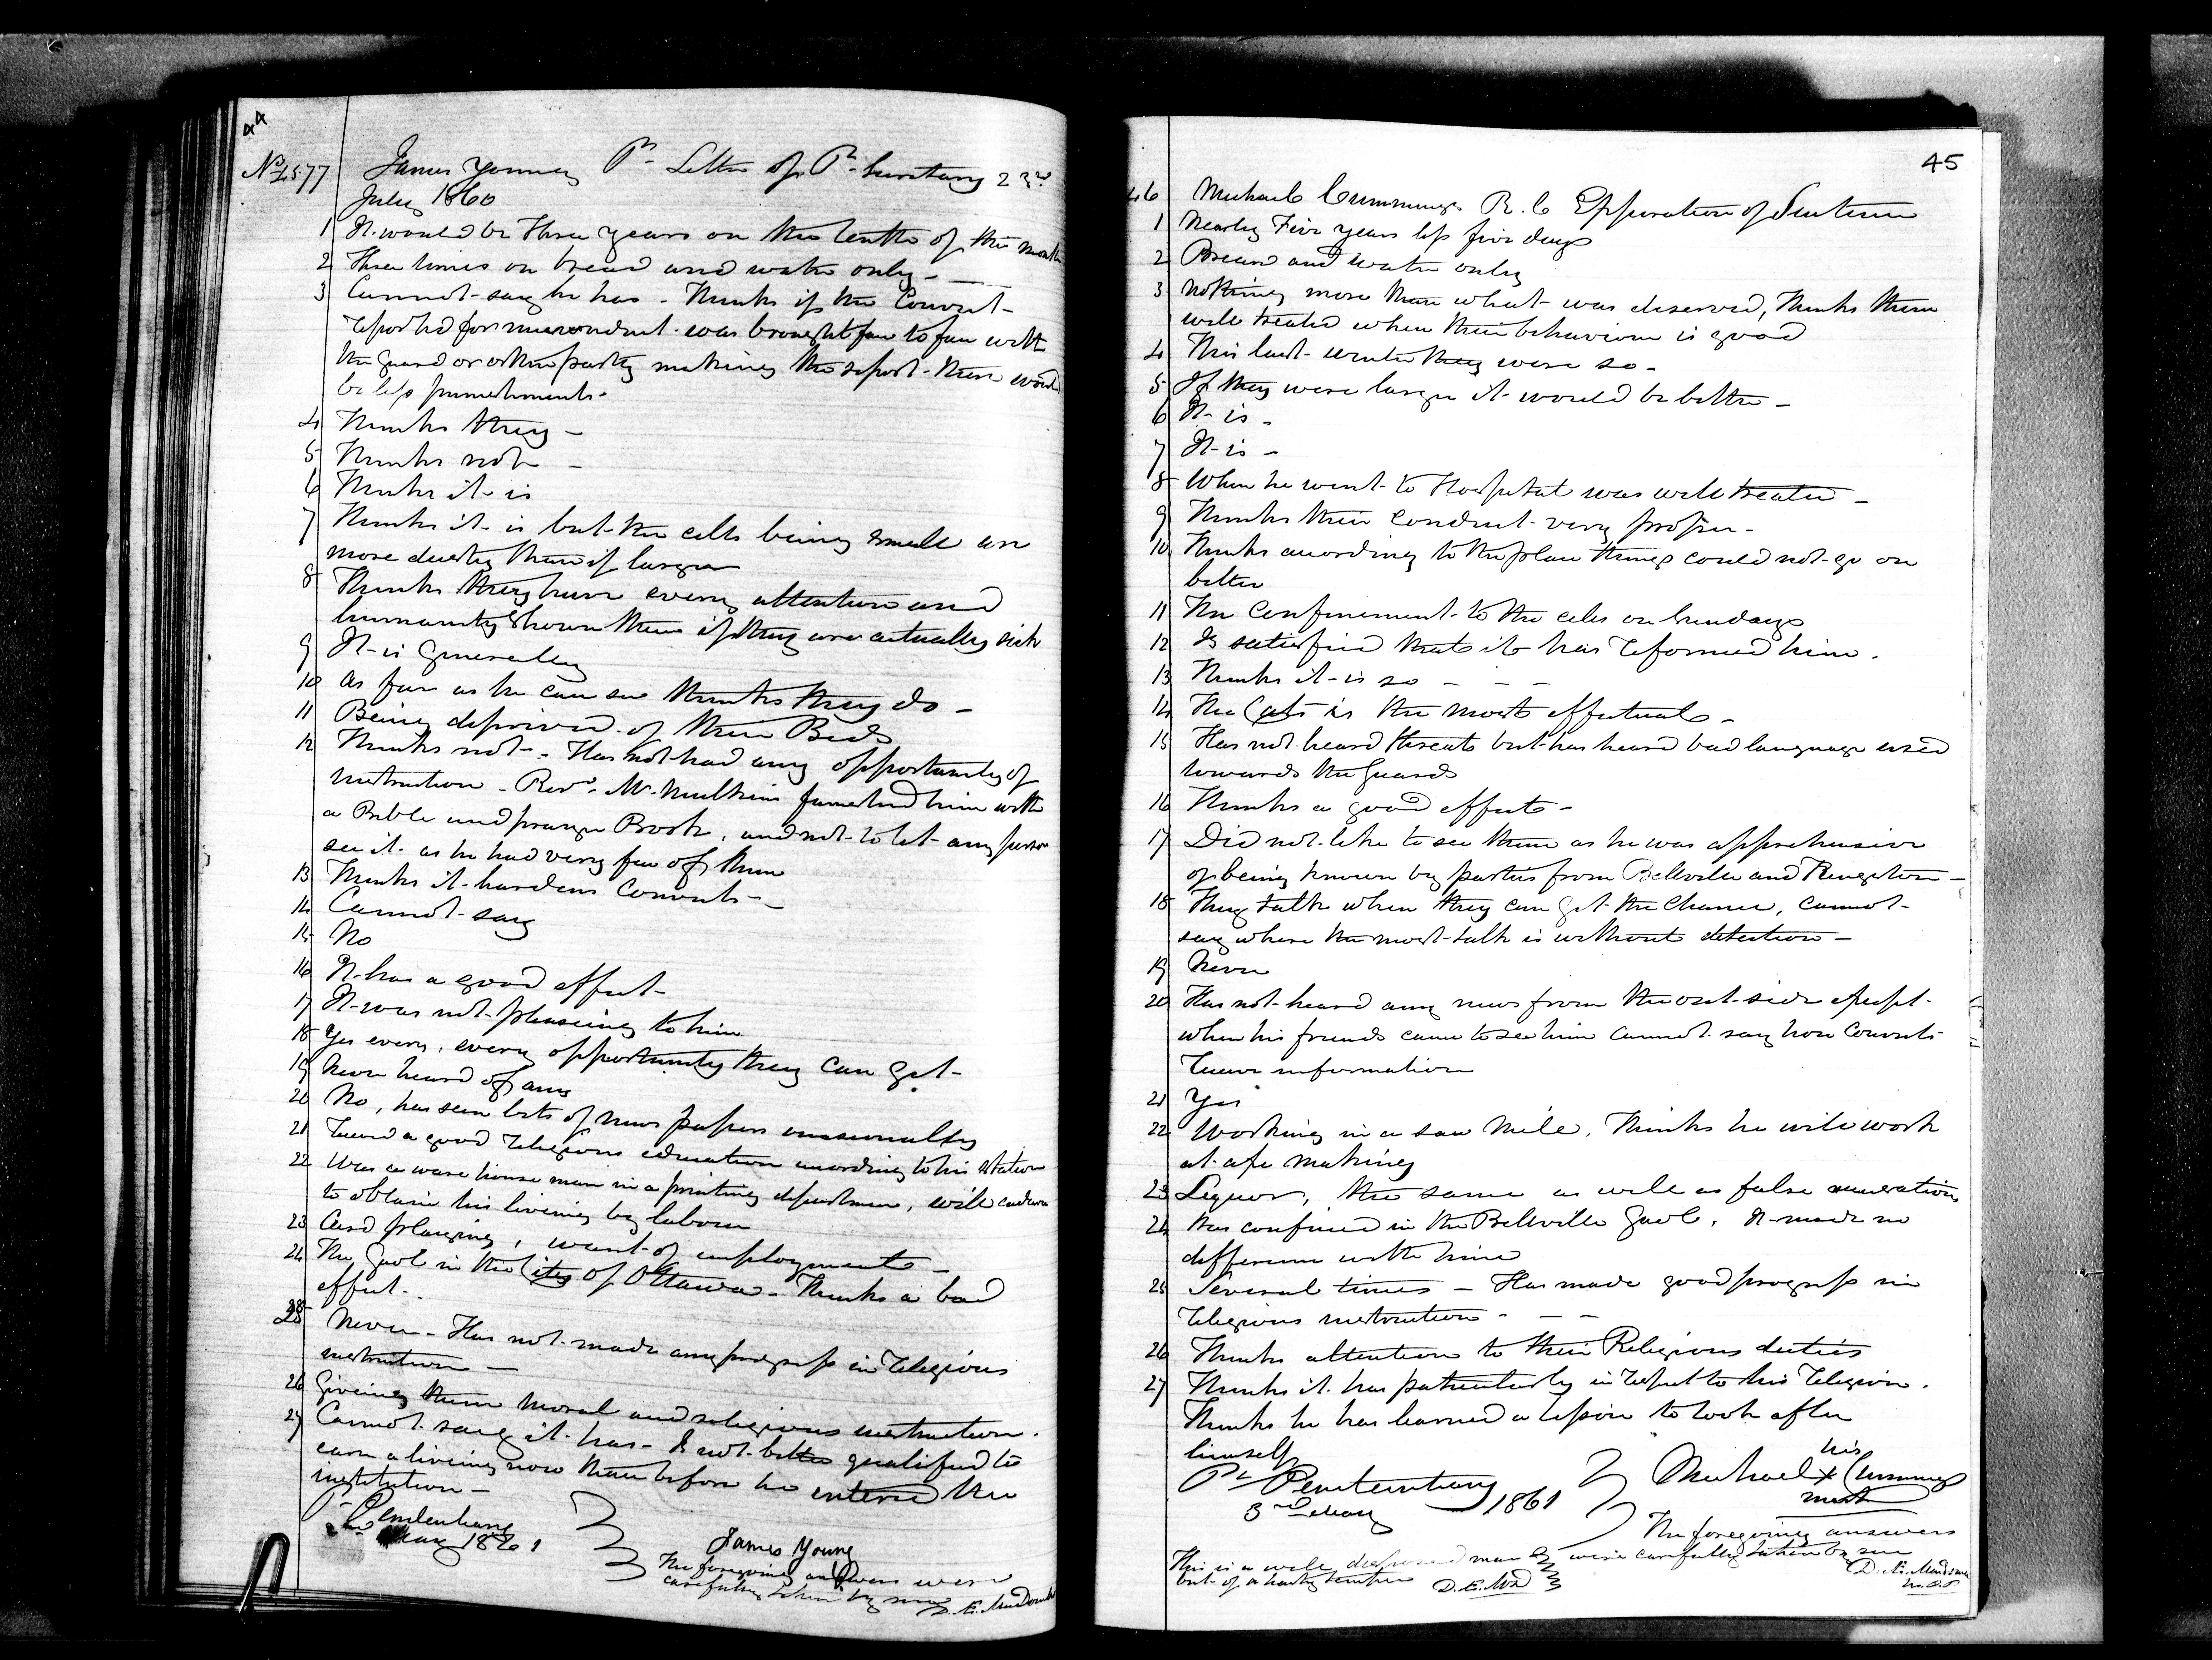 44
No 4577 James Young Pr Letter of P. Secretary 23rd
July 1860
1 It would be Three years on the tenth of the month
2 Three times on bread and water only -
3 Cannot say he has - Thinks if the Convict
reported for misconduct was brought face to face with
the guard or other party making the report - there would
be less punishments -
4 Thinks they -
5 Thinks not -
6 Thinks it is
7 Thinks it is but the cells being small are
more dusty than if larger
8 Thinks they have every attention and
humanity shown them if they are actually sick
9 It is Generally
10 As far as he can see thinks they do -
11 Being deprived of their Beds
12 Thinks not - Has not had any opportunity of
instruction - Revd. Mr. Mulkins furnished him with
a Bible and prayer Book, and not to let any person
see it as he had very few of them
13 Thinks it hardens Convicts -
14 Cannot say
15 No
16 It has a good effect -
17 It was not pleasing to him
18 Yes every, every opportunity they can get -
19 Never heard of any
20 No, has seen bits of news papers occasionally
21 Recvd a good religious education according to his station
22 Was a ware house man in a printing department, will endeavor
to obtain his living by labour
23 Card playing, want of employment -
24 The Gaol in the City of Ottawa - Thinks a bad
effect -
25 Never - Has not made any progress in religious
instruction -
26 Giving them moral and religious instruction.
27 Cannot say it has - Is not better qualified to
earn a living now than before he entered the
institution -
Pl Penitentiary
2nd May 1861
James Young
The foregoing answers were
carefully taken by me
D. E. MacDonald
45
46 Michael Cummings R. C Expiration of Sentence
1 Nearly Five years less five days
2 Bread and water only
3 Nothing more than what was deserved, thinks them
well treated when their behaviour is good
4 This last winter they were so -
5 If they were larger it would be better -
6 It is -
7 It is -
8 When he went to Hospital was well treated -
9 Thinks their conduct very proper -
10 Thinks according to the place things could not go on
better
11 The confinement to the cells on Sundays
12 Is satisfied that it has reformed him.
13 Thinks it is so - - -
14 The Cats is the most effectual -
15 Has not heard threats but has heard bad language used
towards the Guards
16 Thinks a good effect -
17 Did not like to see them as he was apprehensive
of being known by parties from Belleville and Kingston -
18 They talk when they can get the chance, cannot
say where the most talk is without detection -
19 Never
20 Has not heard any news from the out-side except
when his friends came to see him cannot say how Convicts
receive information
21 Yes
22 Working in a saw mill, Thinks he will work
at axe making
23 Liquor, the same as well as false accusations
24 Was confined in the Belleville Gaol, It made no
difference with him
25 Several times - Has made good progress in
religious instruction - - -
26 Thinks attention to their Religious duties
27 Thinks it has particularly in respect to his religion.
Thinks he has learned a lesson to look after
himself
Pl Penitentiary
3rd May 1861
his
Michael x Cummings
mark
The foregoing answers
were carefully taken by me
D. E. MacDonald
This is a well disposed man
but of a hasty temper D. E. McD